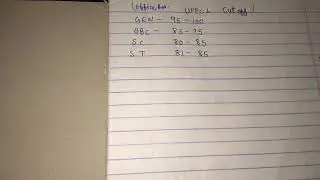 UPPCL Cut off)
GEN - 95 - 100
OBC - 85 - 95
SC 80 - 85
ST 81 - 85